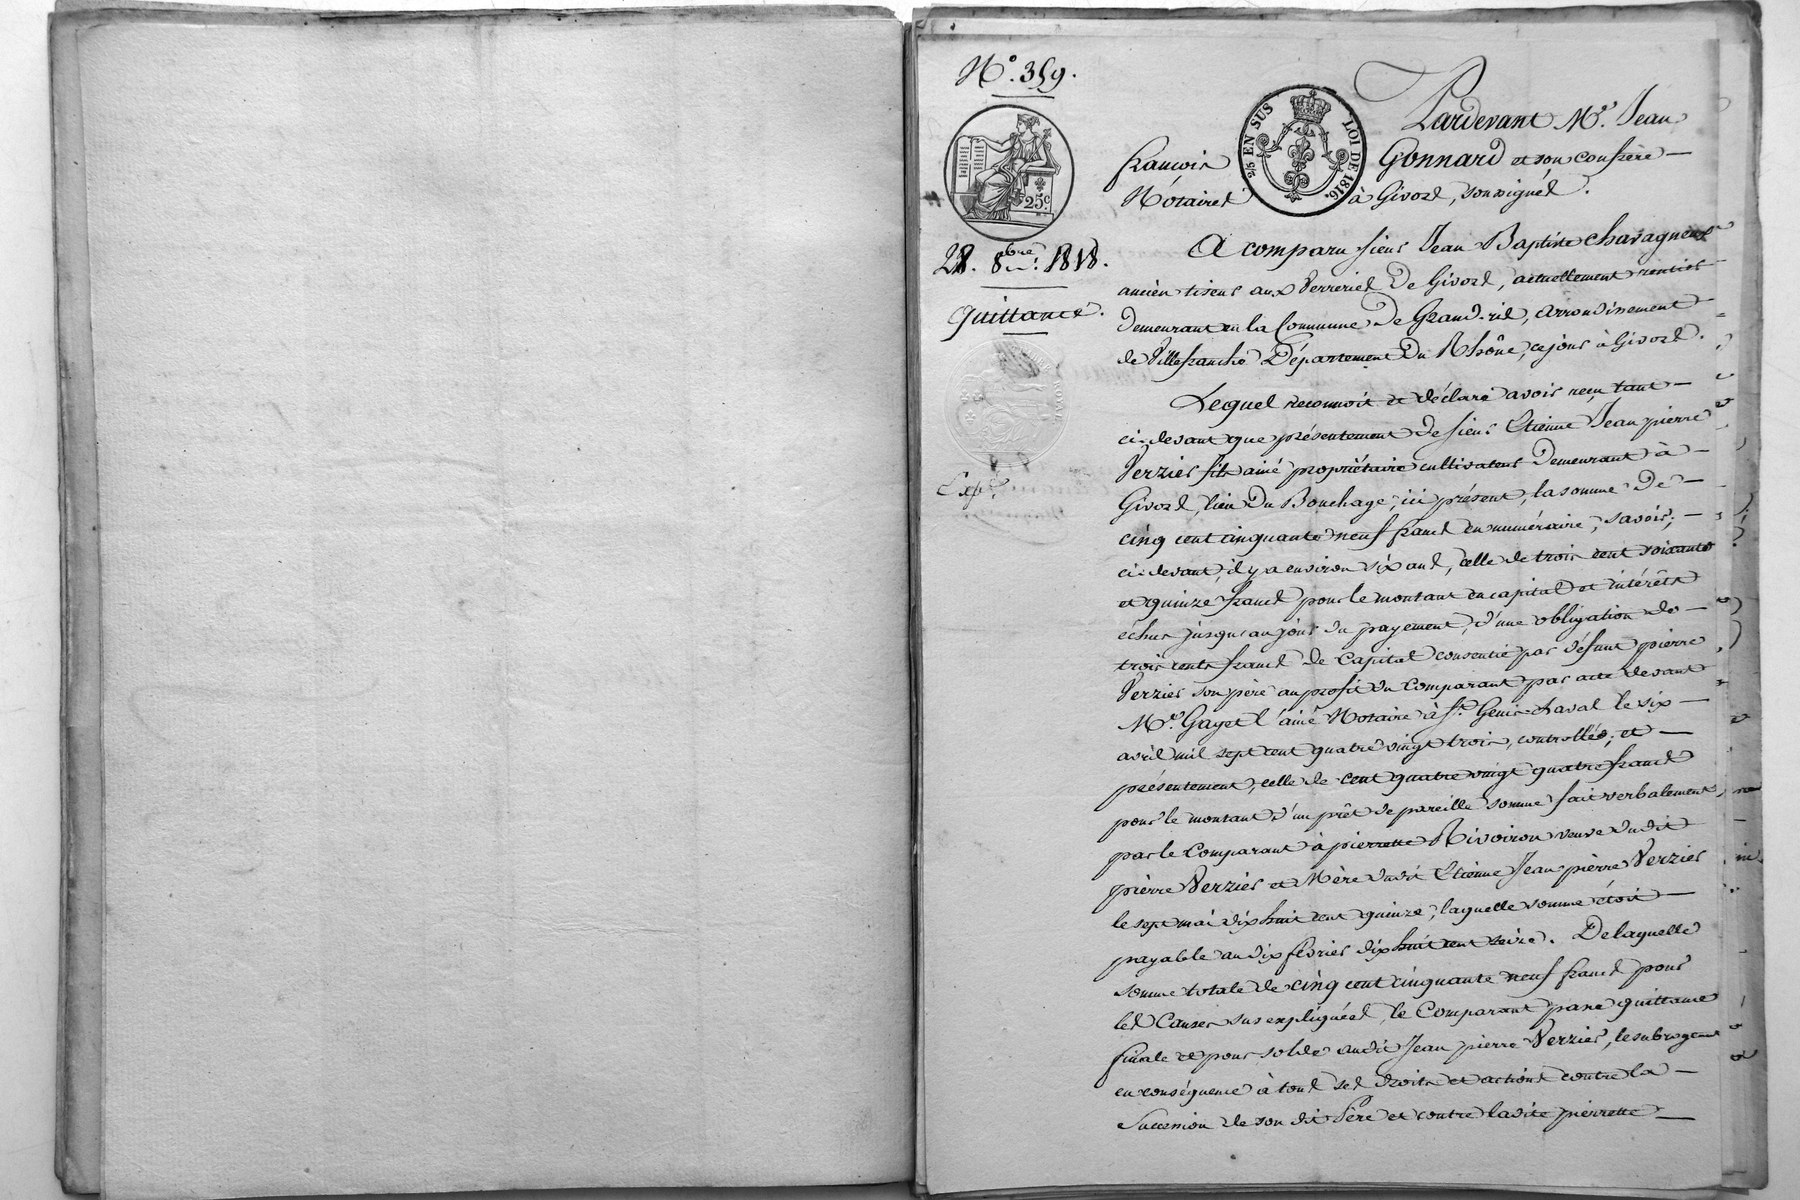 N.° 359.
2/5 EN SUS LOI DE 1816.
25.c
Pardevant M.e Jean
françois Gonnard et son confrère —
Notaires à Givors, soussignés.
28. 8bre 1818.
Quittance.
Exp.é
A comparu sieur Jean Baptiste Chavagneux
ancien tiseur aux Verreries de Givors, actuellement rentier
demeurant en la Commune de Grand-ris, arrondissement
de Villefranche Département du Rhône, ce jour à Givors.
Lequel reconnoit et déclare avoir reçu tant —
ci-devant que présentement de sieur Etienne Jean pierre
Verzier fils ainé propriétaire cultivateur demeurant à —
Givors, lieu du Bouchage, ici présent, la somme de —
cinq cent cinquante neuf francs en numéraire, savoir; —
ci-devant, il y a environ six ans, celle de trois cent soixante
et quinze francs pour le montant en capital et intérêts
échus jusques au jour du payement, d'une obligation de —
trois cents francs de capital consentie par défunt pierre
Verzier son père au profit du comparant par acte devant
M.e Gayet l'ainé Notaire à S.t Genis-Laval le six —
avril mil sept cent quatre vingt trois, controllée; et —
présentement, celle de cent quatre vingt quatre francs
pour le montant d'un prêt de pareille somme fait verbalement
par le Comparant à pierrette Rivoiron veuve dudit
pierre Verzier et Mère dudit Etienne Jean pierre Verzier
le sept mai dix huit cent quinze, laquelle somme étoit —
payable au dix février dix huit cent seize. De laquelle
somme totale de cinq cent cinquante neuf francs pour
les Causes sus expliquées, le Comparant passe quittance
finale et pour solde audit Jean pierre Verzier, le subrogeant
en conséquence à tous ses droits et actions contre la —
Succession de son dit Père et contre ladite pierrette —